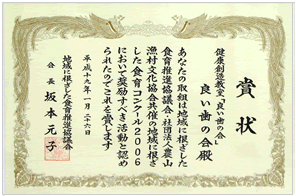 賞状
健康創造教室「良い歯の会」
良い歯の会殿
あなたの取組は地域に根ざした
食育推進協議会・社団法人農山
漁村文化協会共催の地域に根ざ
した食育コンクール2006
において奨励すべき活動と認め
られたのでこれを賞します
平成十九年一月二十六日
地域に根ざした食育推進協議会
会長 坂本元子